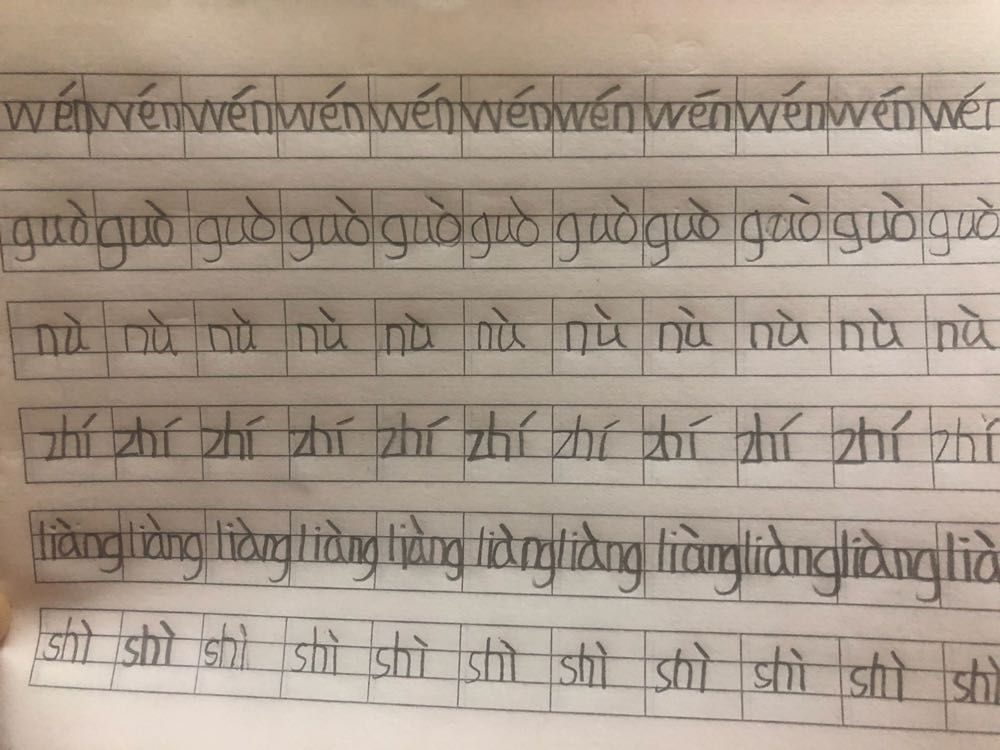 wén wén wén wén wén wén wén wén wén wén wén
guò guò guò guò guò guò guò guò guò guò guò
nù nù nù nù nù nù nù nù nù nù nù
zhí zhí zhí zhí zhí zhí zhí zhí zhí zhí zhí
liàng liàng liàng liàng liàng liàng liàng liàng liàng liàng lià
shì shì shì shì shì shì shì shì shì shì shì